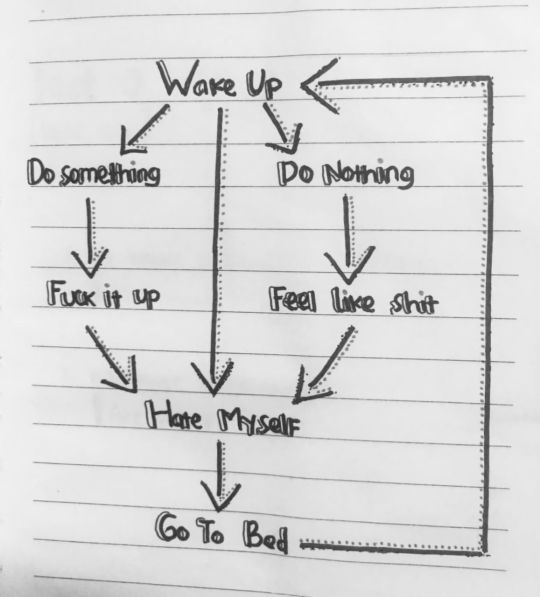 Wake Up
Do something
Do Nothing
Fuck it up
Feel like shit
Hate Myself
Go To Bed